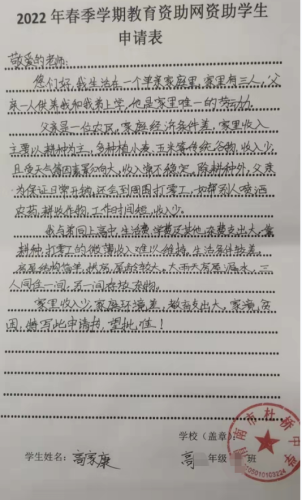 2022 年春季学期教育资助网资助学生
申请表
敬爱的老师:
您们好,我生活在一个单亲家庭里,家里有三人,父
亲一人供养我和我弟上学,他是家里唯一的劳动力。
父亲是一位农民,家庭经济条件差,家里收入
主要以耕种为主,多种植小麦、玉米等传统谷物,收入少,
且受天气等因素影响大,收入很不稳定。除耕种外,父亲
为保证日常开销,还会到周围打零工,如帮别人喷洒
农药、耕收作物,工作时间短,收入少。
我与弟同上高中,生活费、学费及其他花费支出大,靠
耕种、打零工的微薄收入难以维持,生活条件较差。
房屋结构简单,大雨天房屋漏水,三
人同住一间,另一间存放衣物。
家里收入少,家庭环境差,教育支出大,家境贫
困,特写此申请书,望批准!
学校(盖章):
学生姓名:高家康 高 年级 班